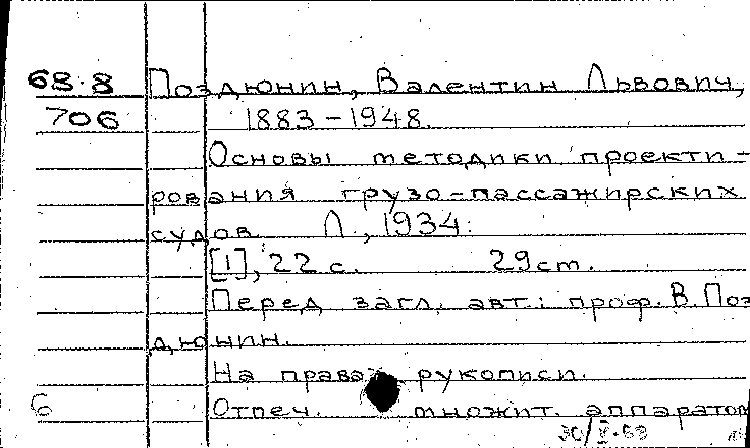 68.8 Поздюнин, Валентин Львович,
706 1883-1948.
Основы методики проекти-
рования грузо-пассажирских
судов. Л., 1934.
[1], 22 с. 29 cm.
Перед загл. авт.: проф. В. Поз
дюнин.
На правах рукописи.
Отпеч. множит. аппаратом
6